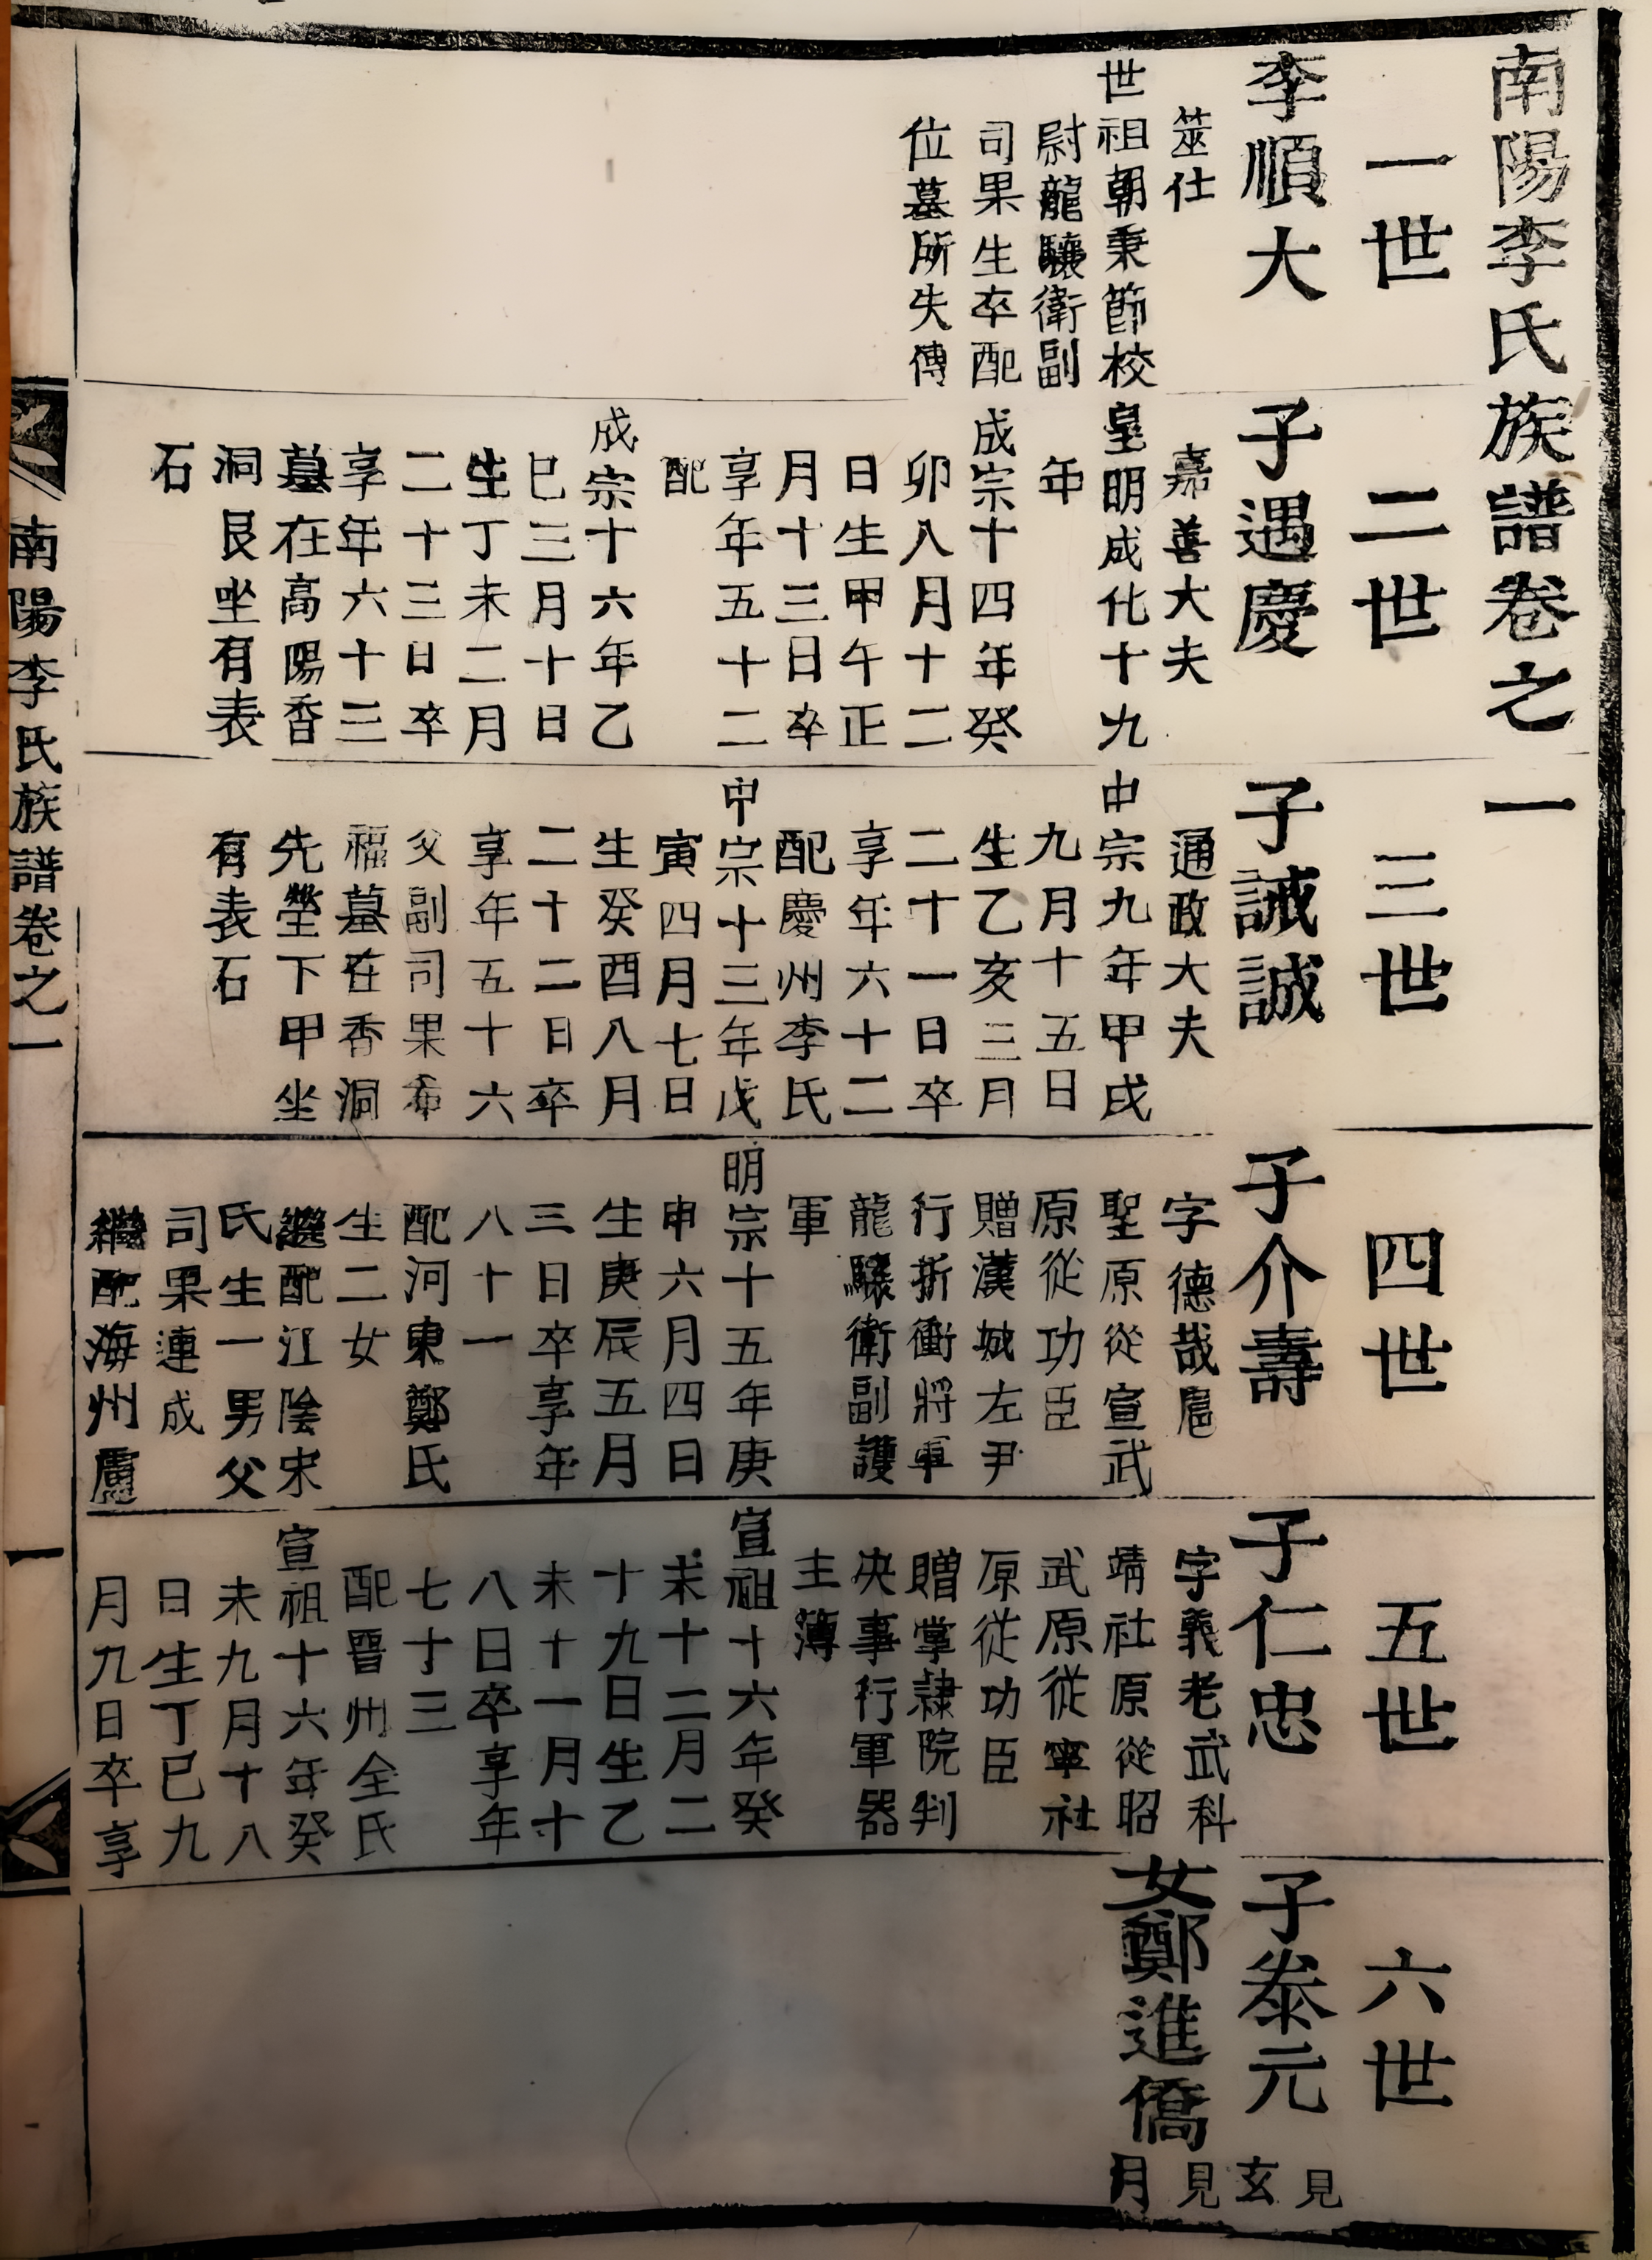 南陽李氏族譜卷之一
一世
李順大
筮仕
世祖朝秉節校
尉龍驤衛副
司果生卒配
位墓所失傳
二世
子遇慶
嘉善大夫
皇明成化十九
年
成宗十四年癸
卯八月十二
日生甲午正
月十三日卒
享年五十二
配
成宗十六年乙
巳三月十日
生丁未二月
二十三日卒
享年六十三
墓在高陽香
洞艮坐有表
石
三世
子誡誠
通政大夫
中宗九年甲戌
九月十五日
生乙亥三月
二十一日卒
享年六十二
配慶州李氏
中宗十三年戊
寅四月七日
生癸酉八月
二十二日卒
享年五十六
父副司果希
福墓在香洞
先塋下甲坐
有表石
四世
子介壽
字德哉扈
聖原從宣武
原從功臣
贈漢城左尹
行折衝將軍
龍驤衛副護
軍
明宗十五年庚
申六月四日
生庚辰五月
三日卒享年
八十一
配河東鄭氏
生二女
繼配江陰宋
氏生一男父
司果連成
繼配海州盧
五世
子仁忠
字義老武科
靖社原從昭
武原從寧社
原從功臣
贈掌隷院判
決事行軍器
主簿
宣祖十六年癸
未十二月二
十九日生乙
未十一月十
八日卒享年
七十三
配晋州全氏
宣祖十六年癸
未九月十八
日生丁巳九
月九日卒享
六世
子泰元
見玄
女鄭進僑
見月
南陽李氏族譜卷之一
一